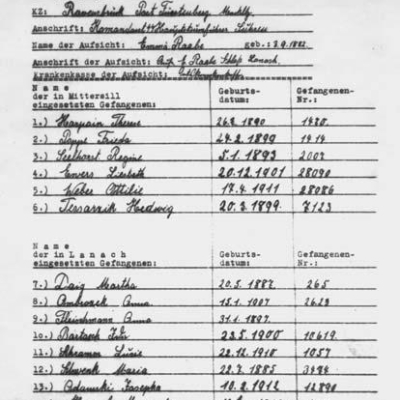 KZ: Ravensbrück Post Fürstenberg Meckl.
Anschrift: Kommandant SS Hauptsturmführer Suhren
Name der Aufsicht: Emmi Raabe geb.: 2.9.1882.
Anschrift der Aufsicht: E. Raabe Schloß Lanach.
Krankenkasse der Aufsicht:
Name
der in Mittersill
eingesetzten Gefangenen:
Geburts-
datum:
Gefangenen-
Nr.:
1.) 26.2. 1890 1480.
2.) Poppe Frieda 24.2. 1899 1414
3.) Seelhorst Regine 5.1. 1893 2007
4.) Ewers Liesbeth 20.12.1901 28090
5.) Weber Ottilie 17.4.1911 28086
6.) Hedwig 20.3.1899. 7123
Name
der in Lanach
eingesetzten Gefangenen:
Geburts-
datum:
Gefangenen-
Nr.:
7.) Daig Martha 20.5. 1882. 265
8.) Ambrozek Anna 15.1. 1907 2623
9.) Fleischmann Anna 31.1. 1897.
10.) Bartsch 23.5. 1900 10619.
11.) Schramm Lucie 22.12. 1910 1057
12.) Schwenk Maria 22.7. 1885 3484
13.) Adamski Josepha 10.2. 1912 12890